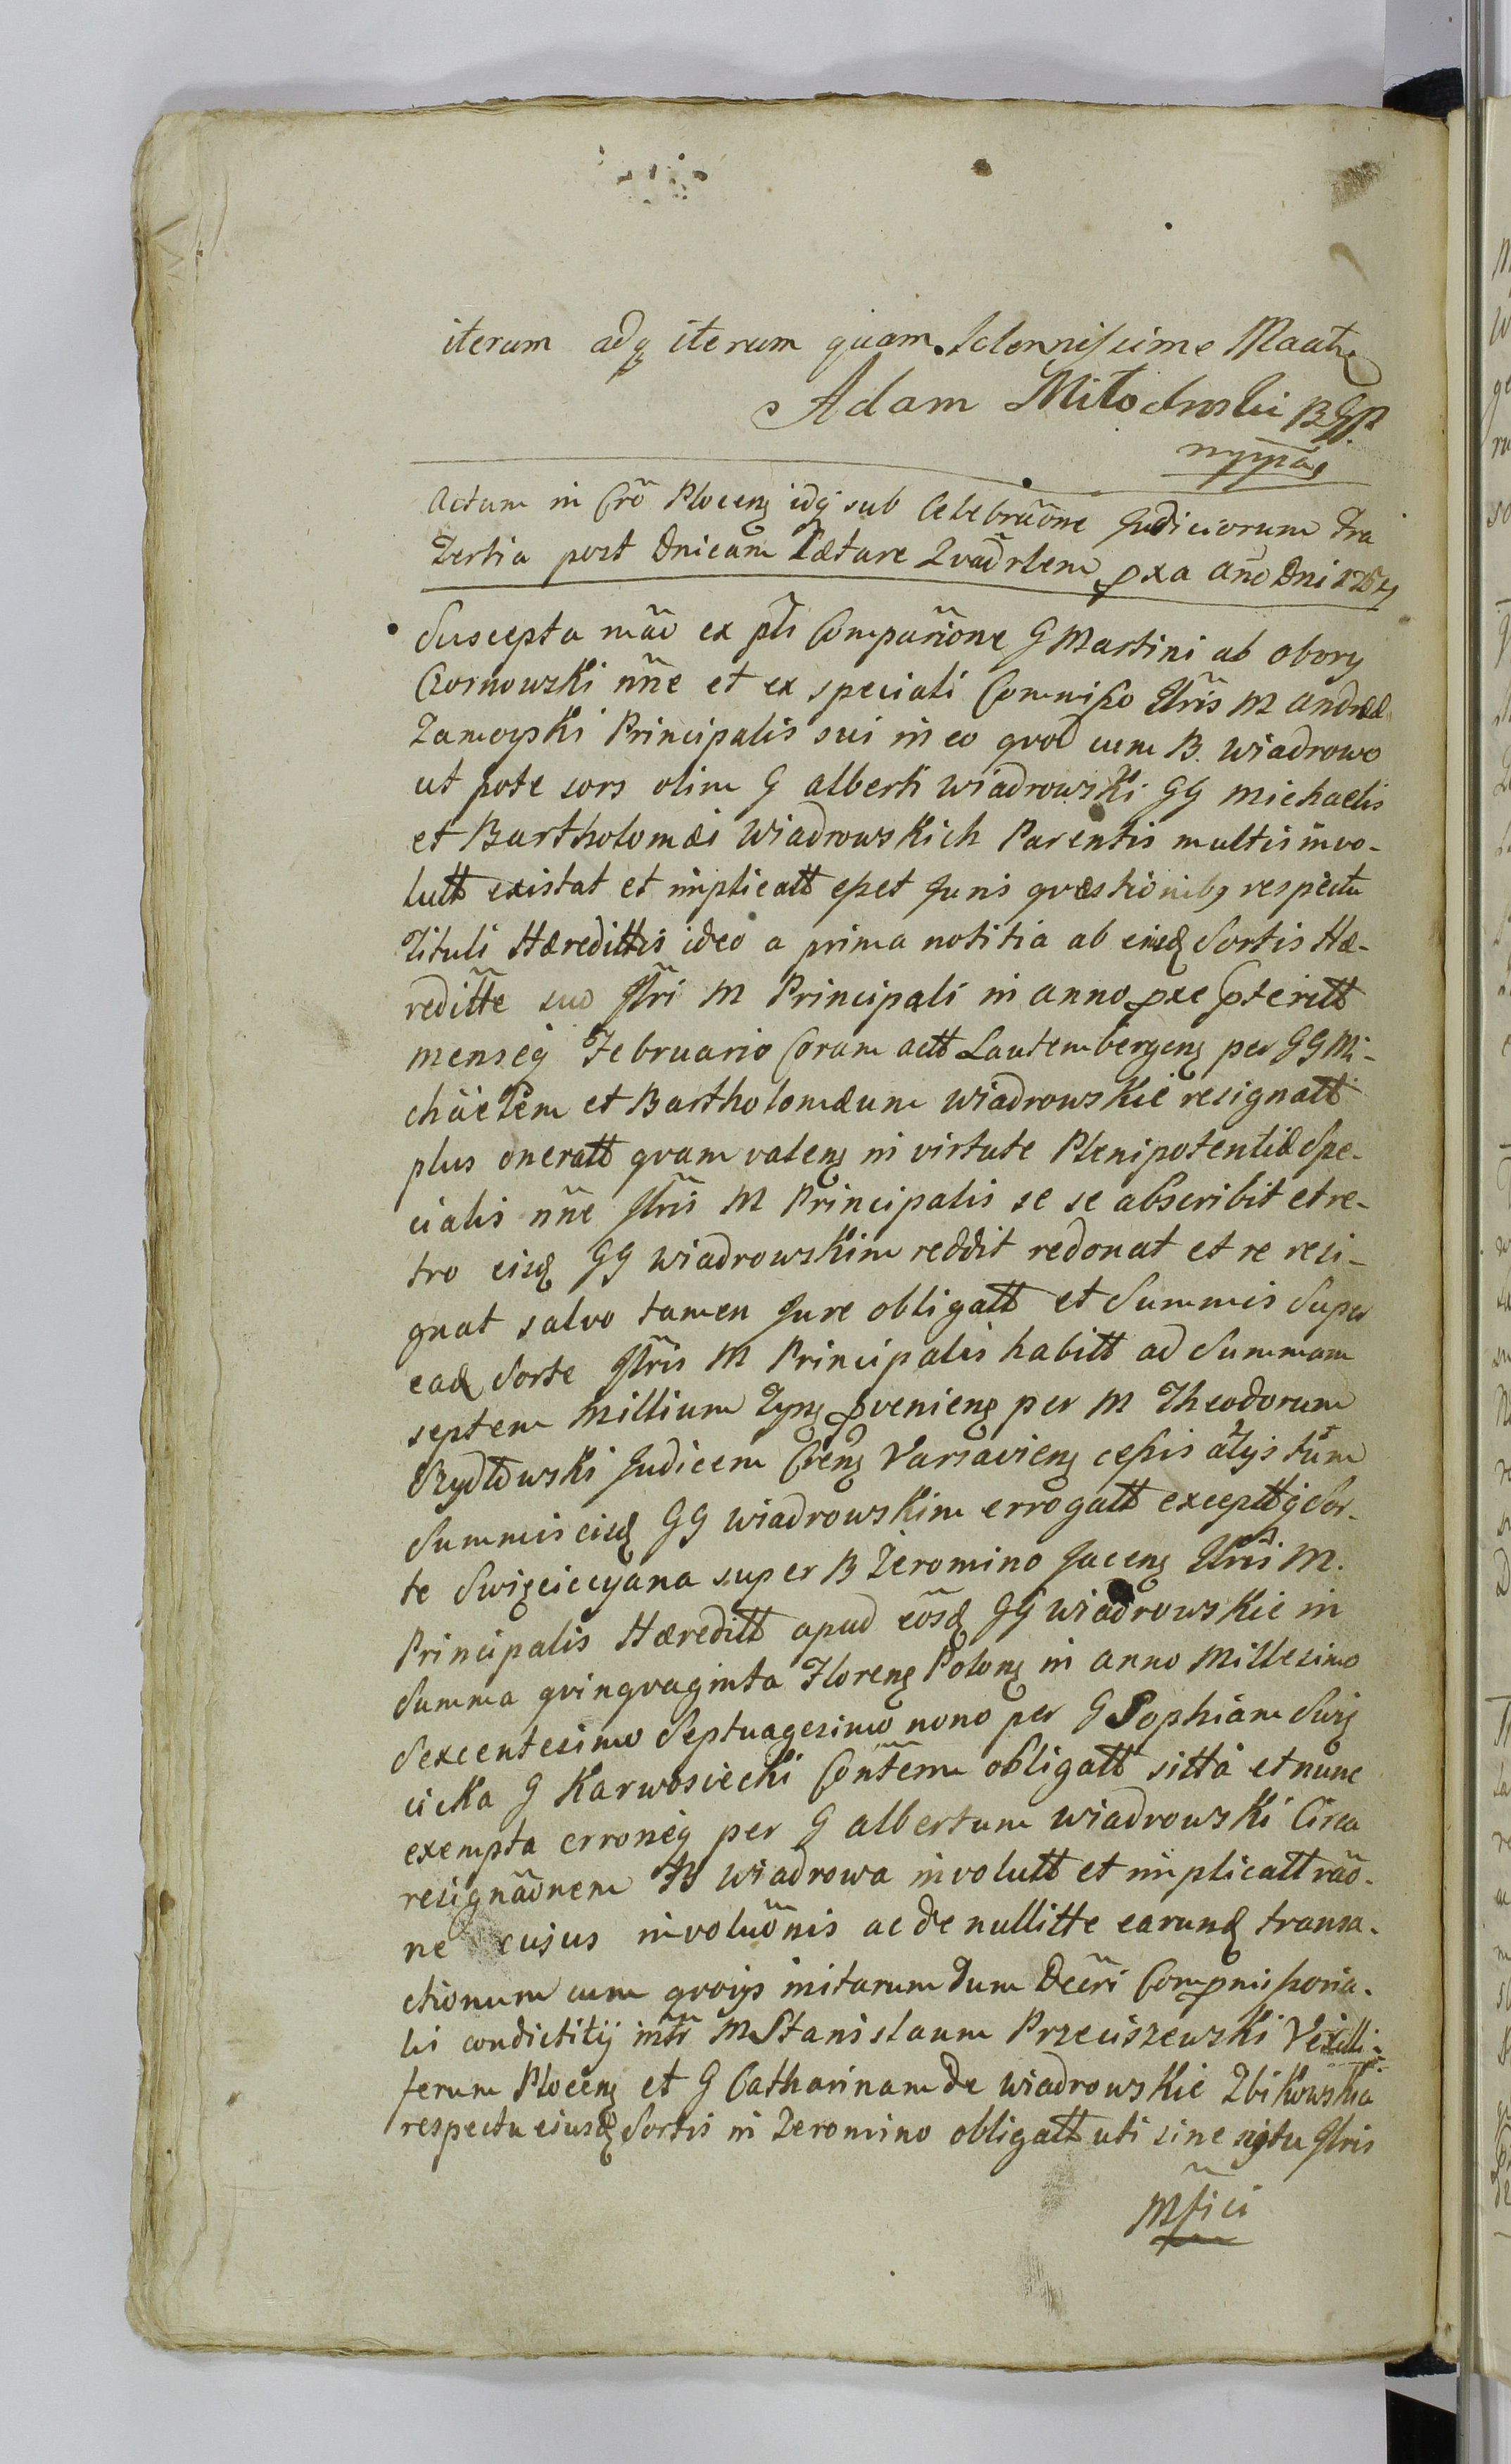 iterum adq iterum quam Solennissime Maatr
Adam Miłodroski BGP
mppa
Actum in Crõ Plocen idq sub Celebraõne Judiciorum Fra
Tertia post Dnicam Lætare Qvadrlem pxa año Dni
Suscepta mão ex pti Compariõne G Martini ab obory
Czornowski nñe et ex speciali Commisso Illris M andreæ
Zamoyski Principalis sui in eo qvod cum B. Wiadrowo
ut pote sors olim G alberti Wiadrowski GG Michaelis
et Bartholomæi Wiadrowskich Parentis multis invo-
lutt existat et implicatt esset Juris qvæstionibg respectu
Tituli Hæredittis ideo a prima notitia ab eiusd Sortis Hæ-
reditte suo Illri M Principali in anno pxe pteritt
menseq Februario Coram actt Lautembergen per GG Mi-
chäelem et Bartholomæum Wiadrowskie resignatt
plus oneratt qvam valen in virtute Plenipotentiæ Spe-
cialis nñe Illris M Principalis se se abscribit et re-
tro eisd GG Wiadrowskim reddit redonat et re resi-
gnat salvo tamen Jure obligatt et Summis Super
ead Sorte Illris M Principalis habitt ad Summam
septem Millium Tynf pvenien per M Theodorum
Szydłowski Judicem Cren Varsavien cessis alys tum
Summis eisd GG Wiadrowskim errogatt excepttq Sor-
te Swięcicyana super B Zeromino Jacen Illris M.
Principalis Hæreditt apud eosd GG Wiadrowskie in
Summa qvinqvaginta Floren Polon in anno Millesimo
Sexcentesimo Septuagesimo nono per G Sophiam Swię
cicka G Karwosiecki Contem obligatt sitta et nunc
exempta erroneq per G albertum Wiadrowski Circa
resignãonem B Wiadrowa involutt et implicatt rão-
ne cujus involuõnis ac de nullitte earund transa-
ctionum cum qvovis initarum dum Decri Compmissoria-
li condictitij intr M Stanislaum Przeciszewski Vexilli-
ferum Plocen et G Catharinam de Wiadrowskie Zbikowska
respectu eiusd Sortis in Zeromino obligatt uti sine Illris
Mfici